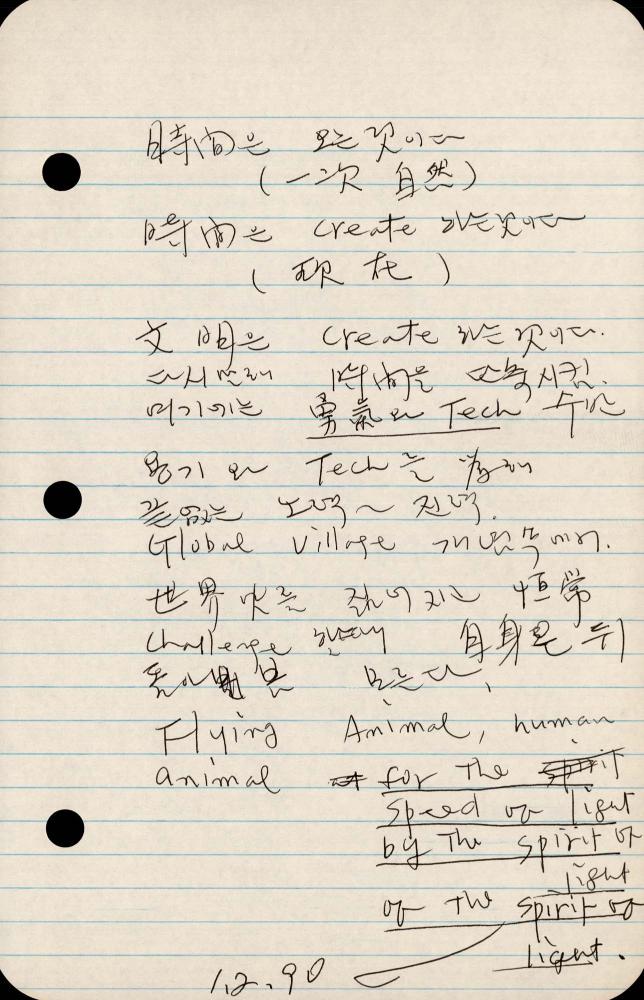 時間은 오는 것이다
(一次 自然)
時間은 create 하는것이다
(現在)
文明은 create 하는것이다.
다시말해 時間을 단축시킴.
여기에는 勇氣와 Tech 수반
용기와 Tech을 위해
끝없는 노력~ 전력.
Global Village 개념속에서.
世界 맛을 恒常
challenge 할때 自身을 뒤
돌아 볼 모른다,
Flying Animal, human
animal for the
speed of light
by the spirit of
light
of the spirit of
light.
1.2.90